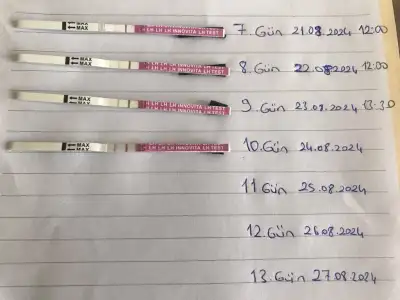 MAX
MAX
LH LH LH INNOVITA LH TEST
7. Gün 21.08.2024 12:00
MAX
MAX
LH LH LH INNOVITA LH TEST
8. Gün 22.08.2024 12:00
MAX
MAX
LH LH LH INNOVITA LH TEST
9. Gün 23.08.2024 13:30
MAX
MAX
LH LH LH INNOVITA LH TEST
10. Gün 24.08.2024
11 Gün 25.08.2024
12. Gün 26.08.2024
13. Gün 27.08.2024